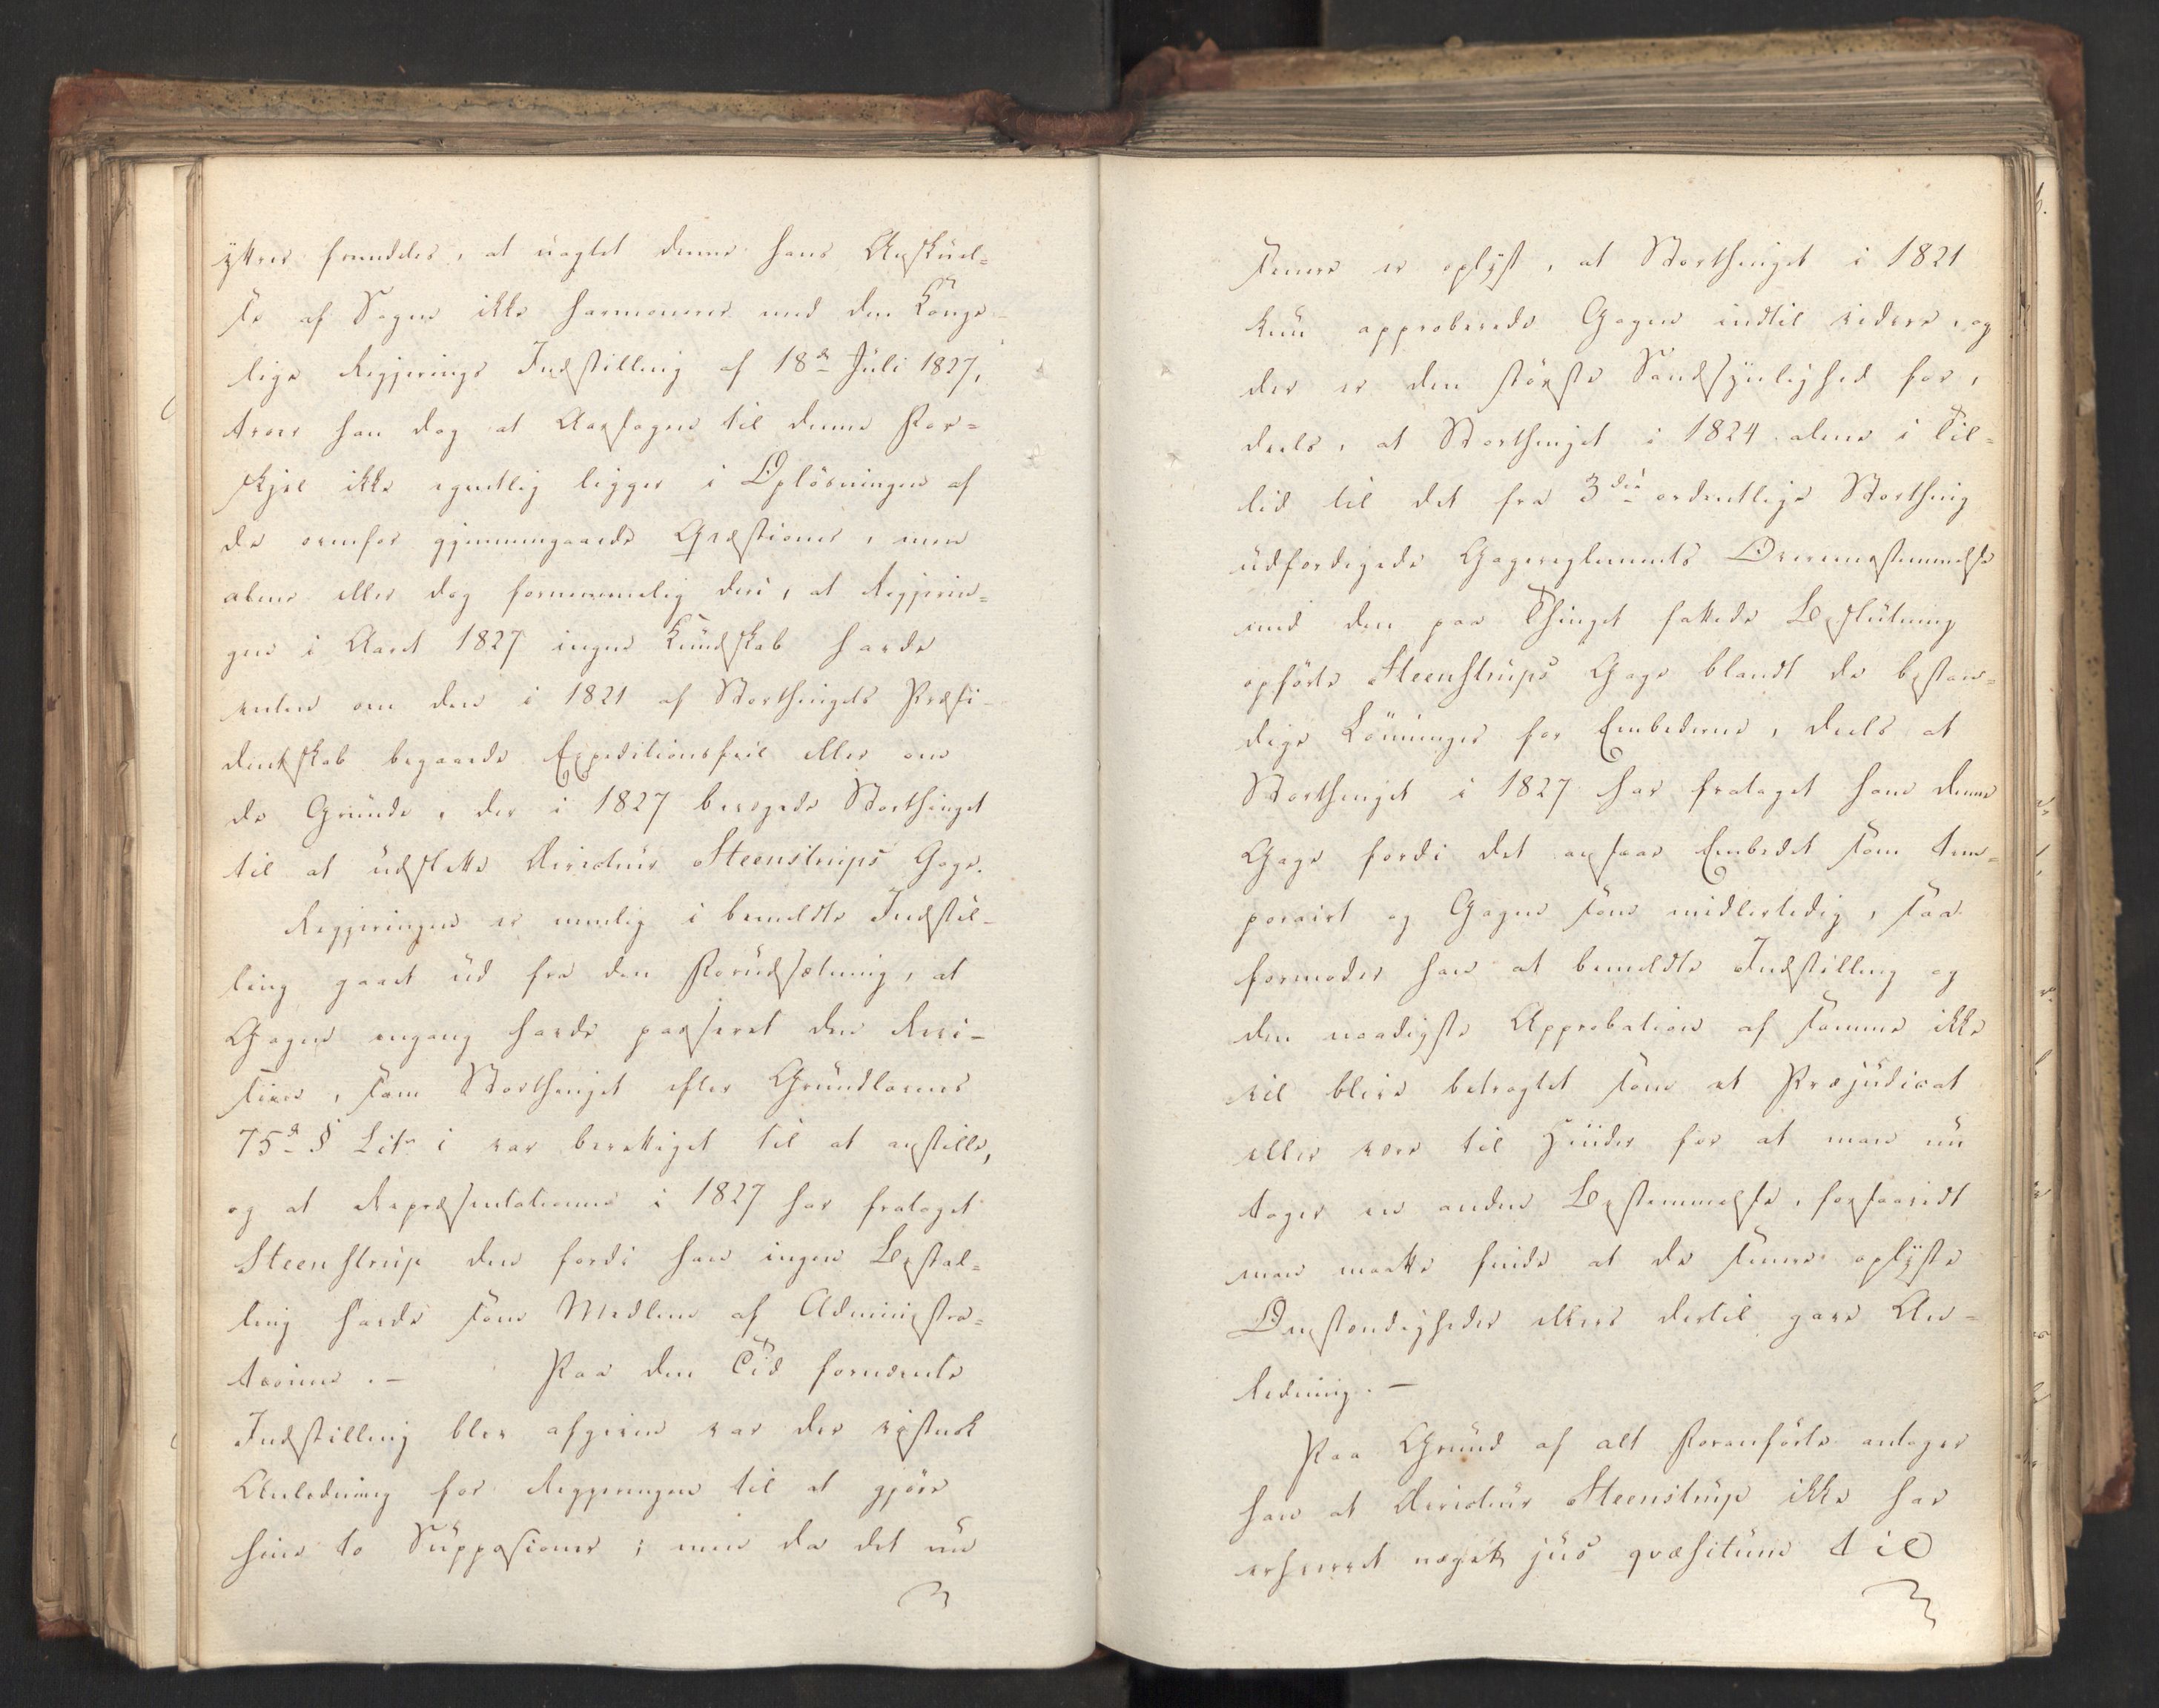 yttres fremdeles, at uagtet denne hans Anskuel-
se af Sagen ikke harmonerer med den Konge-
lige Regjerings Indstilling af 18de Juli 1827,
troer han dog at Aarsagen til denne For-
skjel ikke egentlig ligger i Oplösningen af
de ovenfor gjennemgaaede Qvæstioner, men
alene eller dog fornemmelig deri, at Regjerin-
gen i Aaret 1827 ingen Kundskab havde
enten om den i 1821 af Storthingets Præsi-
dentskab begaaede Expeditionsfeil eller om
de Grunde, der i 1827 bevægede Storthinget
til at udslette Directeur Steenstrups Gage.
Regjeringen er nemlig i bemeldte Indstil-
ling gaaet ud fra den Forudsætning, at
Gagen engang havde passeret den Revi-
sion, som Storthinget efter Grundlovens
75de § Litr i var berettiget til at anstille,
og at Repræsentationen i 1827 har frataget
Steenstrup den fordi han ingen Bestal-
ling havde som Medlem af Administra-
tionen. - Paa den Tid fornævnte
Indstilling blev afgiven var der vistnok
Anledning for Regjeringen til at gjöre
hine to Suppositioner; men da det nu
senere er oplyst, at Storthinget i 1821
kun approberede Gagen indtil videre, og
der er den störste Sandsynlighed for,
deels, at Storthinget i 1824 alene i Til-
lid til det fra 3die ordentlige Storthing
udfærdigede Gagereglements Overensstemmelse
med den paa Thinget fattede Beslutning
opförte Steenstrups Gage blandt de bestan-
dige Lönninger for Embederne, deels at
Storthinget i 1827 har frataget ham denne
Gage fordi det ansaae Embedet som tem-
porairt og Gagen som midlertidig, saa
formoder han at bemeldte Indstilling og
den naadigste Approbation af samme ikke
vil blive betragtet som et Præjudicat
eller være til Hinder for at man nu
tager en anden Bestemmelse, forsaavidt
man maatte finde at de senere oplyste
Omstændigheder ellers dertil gave An-
ledning. -
Paa Grund af alt Foranförte antager
han at Directeur Steenstrup ikke har
erhvervet noget jus qvæsitum til